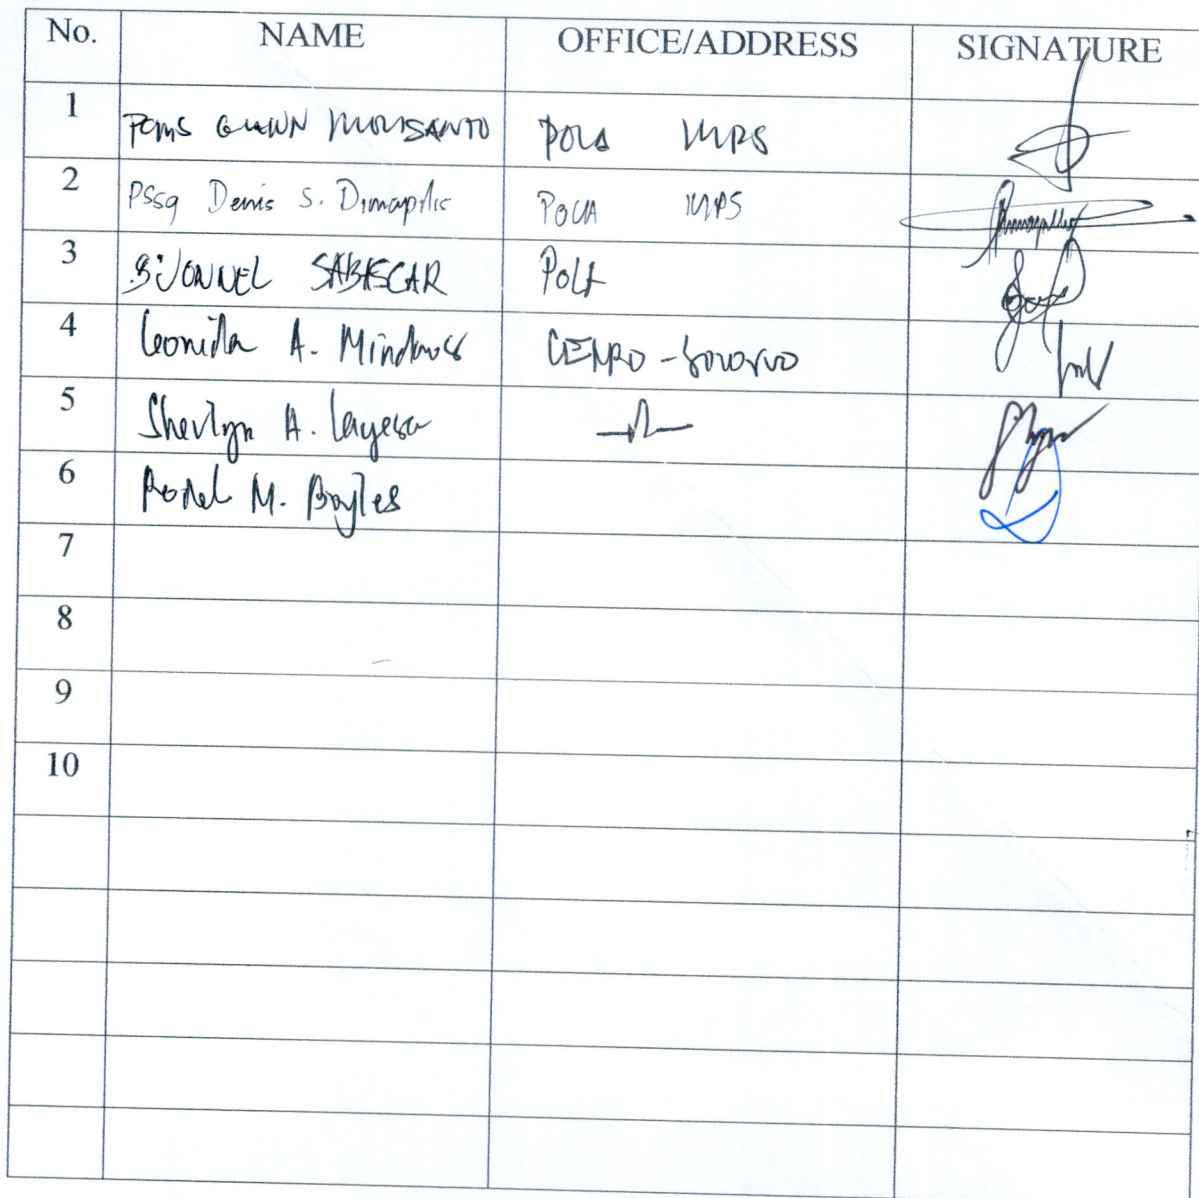 No. NAME OFFICE/ADDRESS SIGNATURE
1 PCMS MONSANTO POLA MPS
2 PSSg Denis S. Dimapilis POLA MPS
3 BIJONNEL SABASCAR POLA
4 Leonida A. CENRO - Socorro
5 Sherlyn A. Layesa
6 Rodel M. Boyles
7
8
9
10